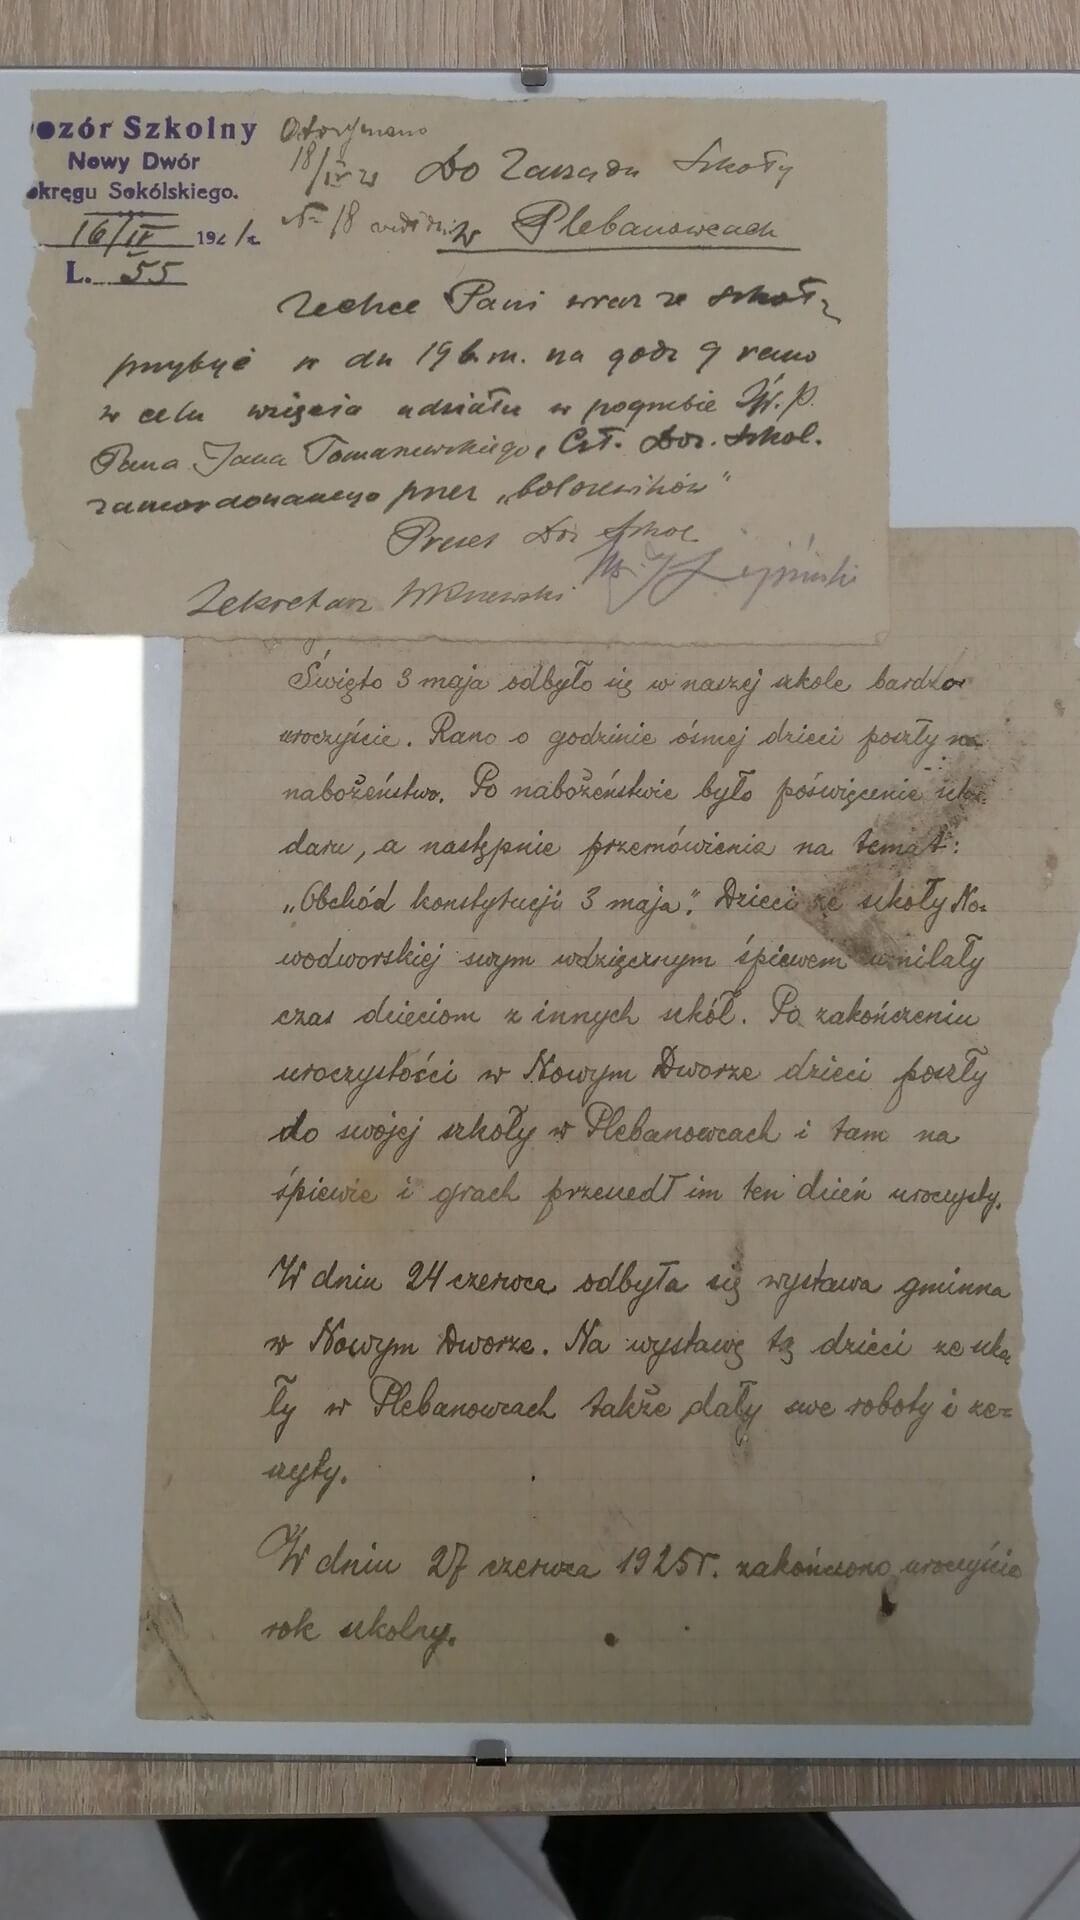 ozór Szkolny
Nowy Dwór
okręgu Sokólskiego.
16/IV 1921 r.
L. 55
Otrzymano
18/IV 21
№ 18
Do Zarządu Szkoły
w Plebanowcach
Zechce Pani wraz ze szkołą
przybyć w dn 19 b.m. na godz 9 rano
w celu wzięcia udziału w pogrzebie Św. P.
Pana Jana Tomaszewskiego, Czł. Doz. Szkol.
zamordowanego przez „bolszewików"
Prezes Doz Szkol
Sekretarz
Święto 3 maja odbyło się w naszej szkole bardzo
uroczyście. Rano o godzinie ósmej dzieci poszły na
nabożeństwo. Po nabożeństwie było poświęcenie sztan-
daru, a następnie przemówienia na temat:
„Obchód konstytucji 3 maja". Dzieci ze szkoły No-
wodworskiej swym wdzięcznym śpiewem umilały
czas dzieciom z innych szkół. Po zakończeniu
uroczystości w Nowym Dworze dzieci poszły
do swojej szkoły w Plebanowcach i tam na
śpiewie i grach przeszedł im ten dzień uroczysty.
W dniu 24 czerwca odbyła się wystawa gminna
w Nowym Dworze. Na wystawę tę dzieci ze szko
ły w Plebanowcach także dały swe roboty i ze-
szyty.
W dniu 27 czerwca 1925 r. zakończono uroczyście
rok szkolny.